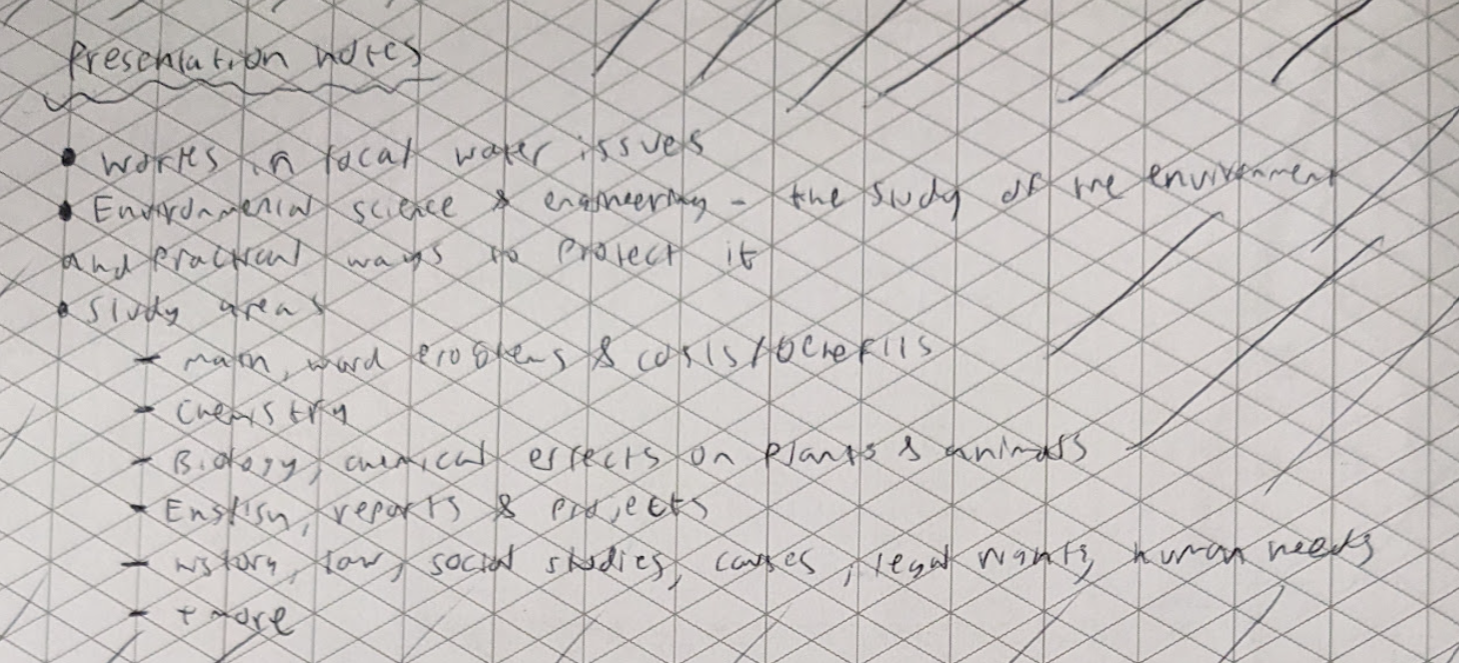 Presentation notes
• works in local water issues
• Environmental science & engineering - the study of the environment
and practical ways to protect it
• Study areas
- math, word problems & costs/benefits
- Chemistry
- Biology, chemical effects on plants & animals
- English, reports & projects
- history, law, social studies, causes, legal rights, human needs
- + more